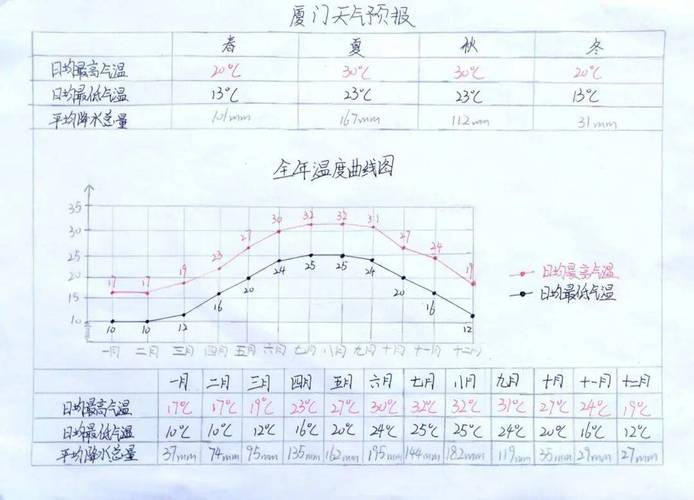 厦门天气预报
春 夏 秋 冬
日均最高气温 20℃ 30℃ 30℃ 20℃
日均最低气温 13℃ 23℃ 23℃ 13℃
平均降水总量 101mm 167mm 112mm 31mm
全年温度曲线图
35
30
25
20
15
10
17 17 19 23 27 30 32 32 31 27 24 19
10 10 12 16 20 24 25 25 24 20 16 12
日均最高气温
日均最低气温
一月 二月 三月 四月 五月 六月 七月 八月 九月 十月 十一月 十二月
一月 二月 三月 四月 五月 六月 七月 八月 九月 十月 十一月 十二月
日均最高气温 17℃ 17℃ 19℃ 23℃ 27℃ 30℃ 32℃ 32℃ 31℃ 27℃ 24℃ 19℃
日均最低气温 10℃ 10℃ 12℃ 16℃ 20℃ 24℃ 25℃ 25℃ 24℃ 20℃ 16℃ 12℃
平均降水总量 37mm 74mm 95mm 135mm 162mm 195mm 144mm 182mm 119mm 35mm 29mm 27mm